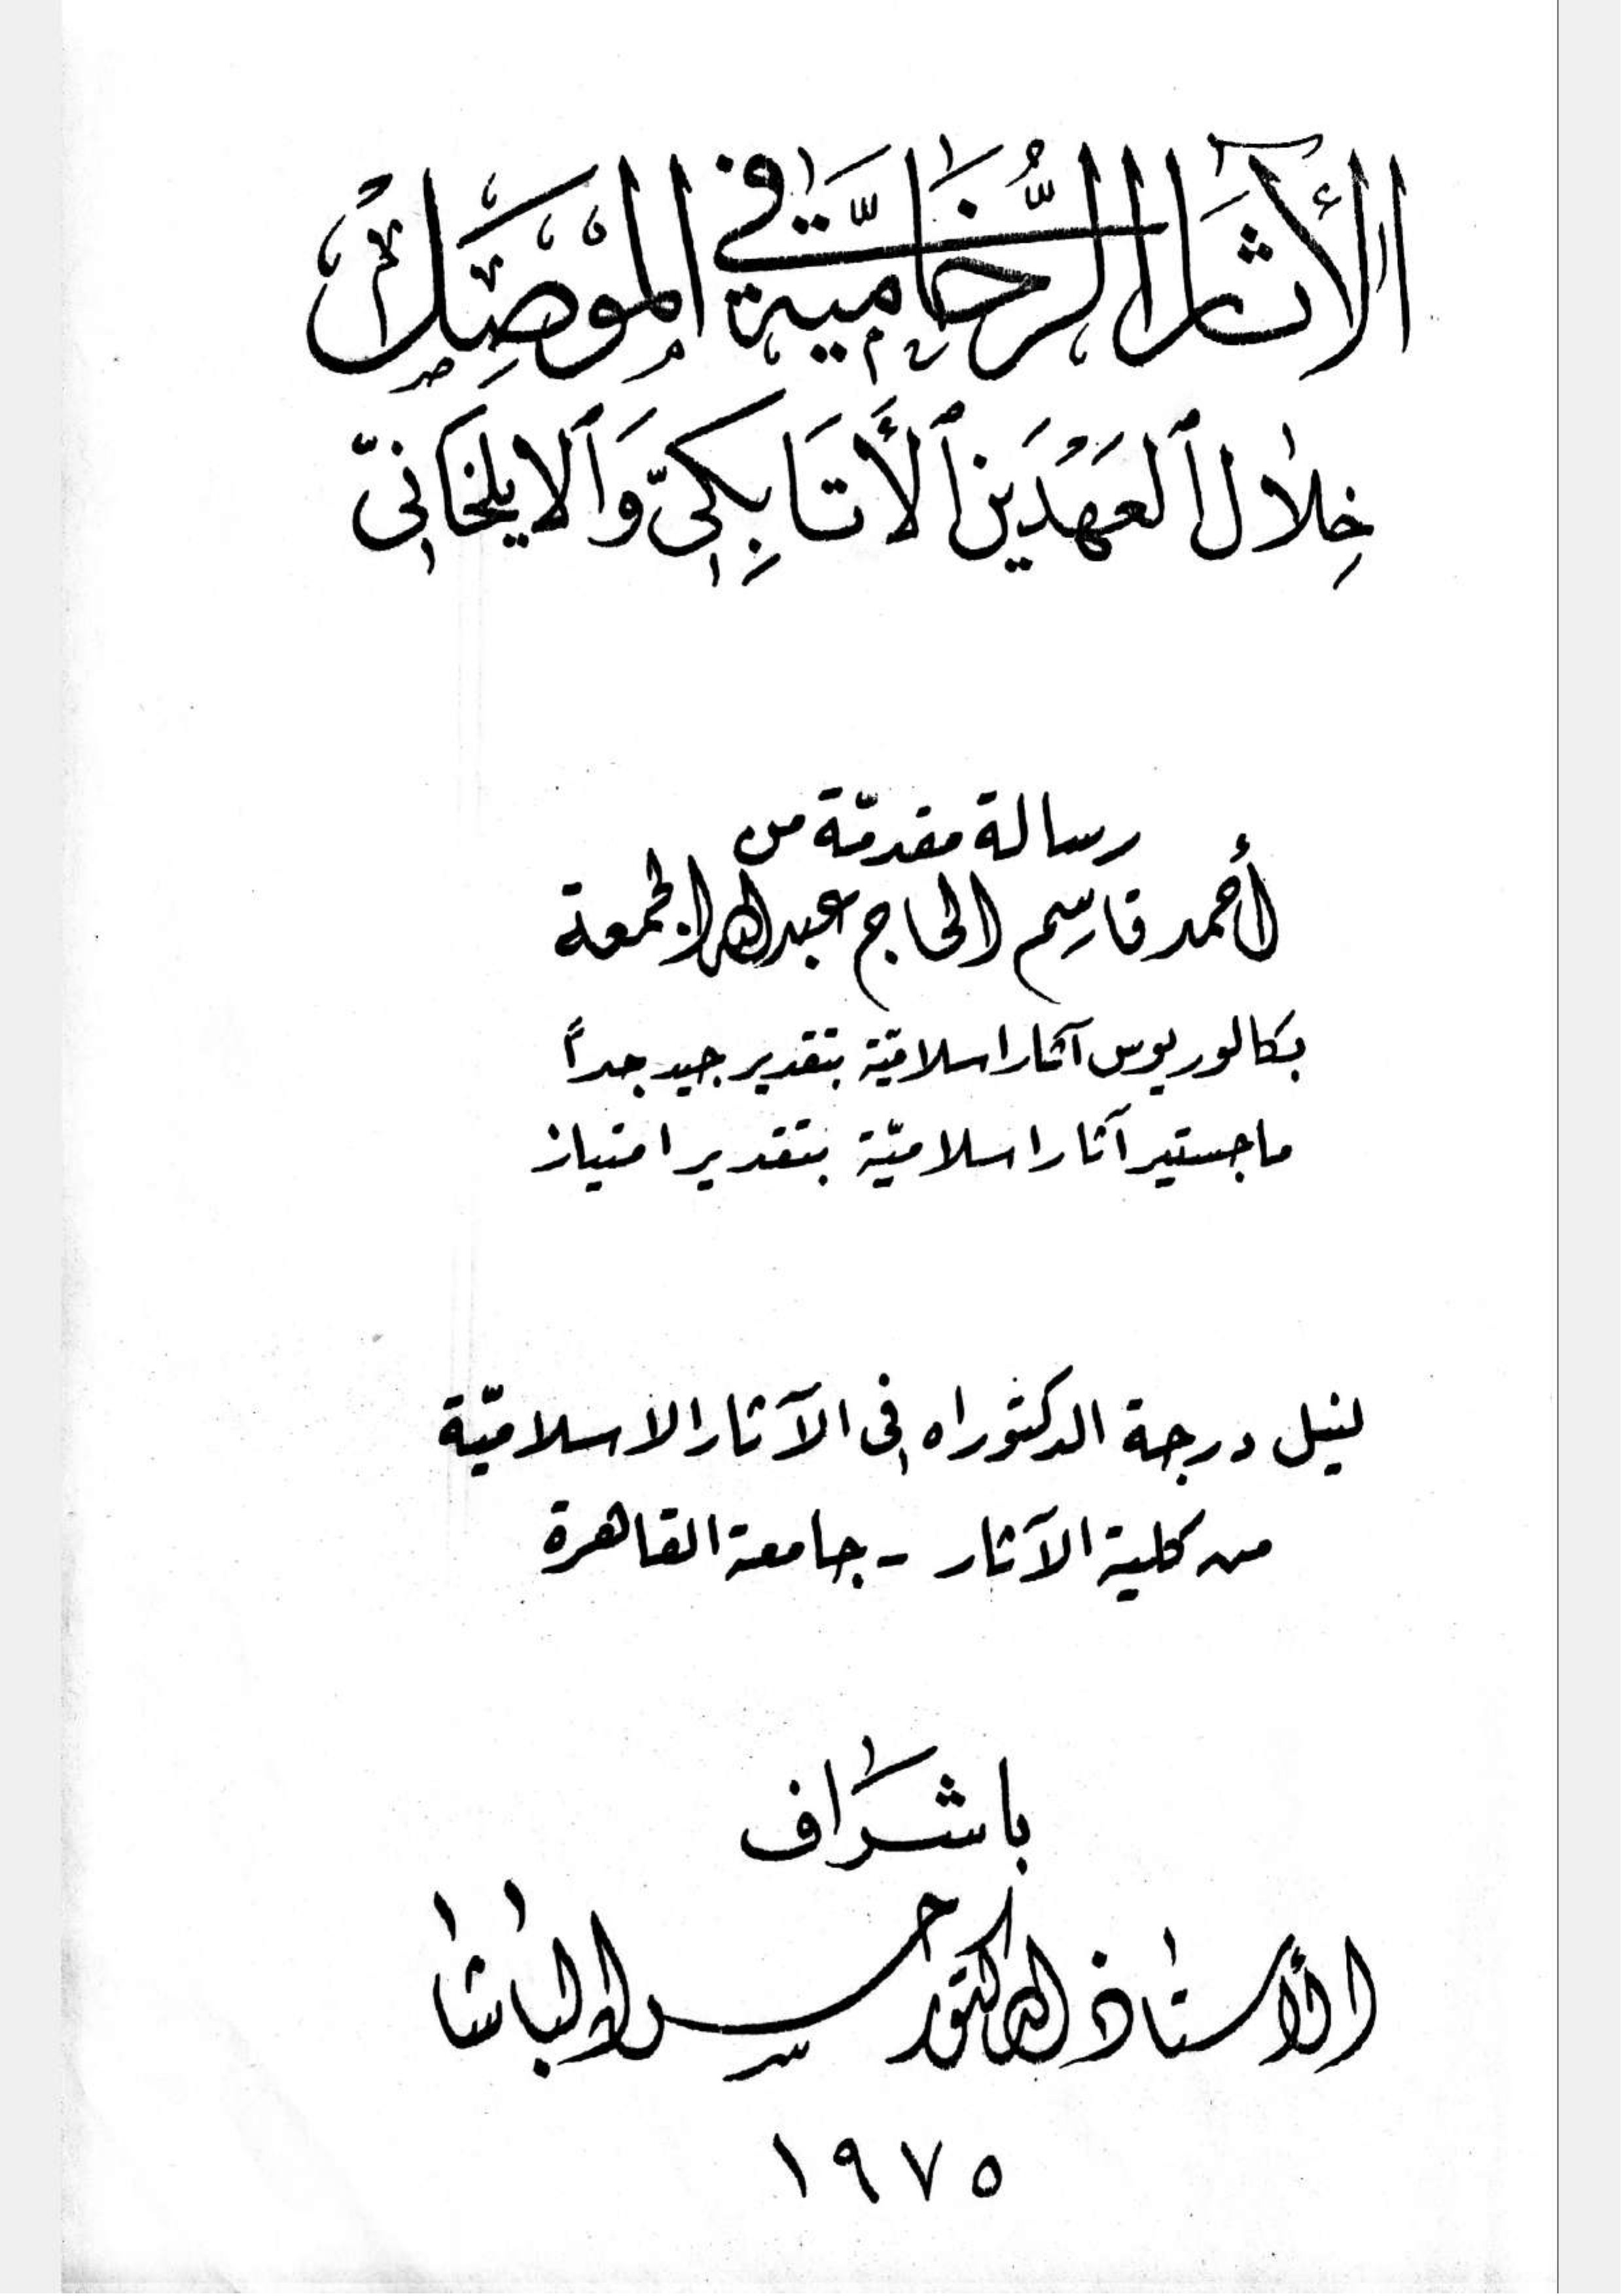 الآثار الرُّخَاميَّة في المَوصِل
خِلَال ٱلعَهْدَين ٱلأَتَابِكيّ وَٱلايلخَانيّ
رسالة مقدمّة من
أحمد قاسِم الحاج عبدالله الجمعة
بكالوريوس آثار اسلاميّة بتقدير جيد جداً
ماجستير آثار اسلاميّة بتقدير امتياز
لنيل درجة الدكتوراه في الآثار الاسلاميّة
من كلية الآثار - جامعة القاهرة
باشَراف
الأستاذ الدكتور حسن الباشا
١٩٧٥